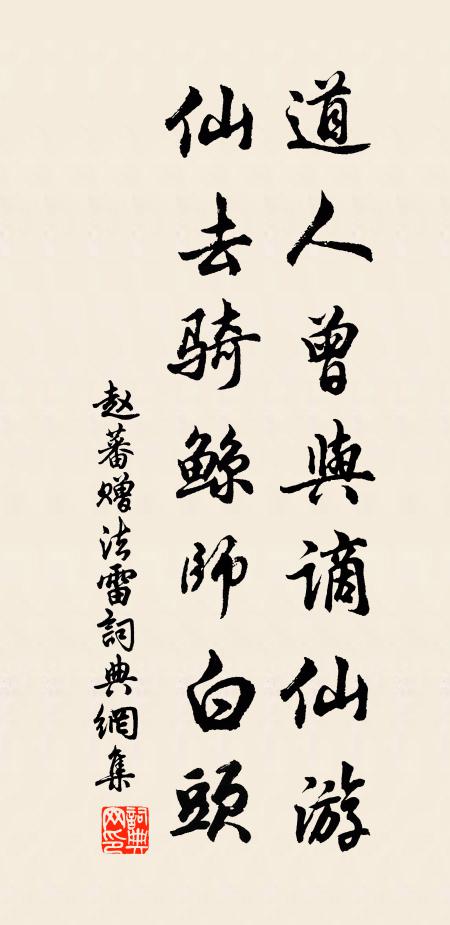 道人曾與謫仙游
仙去骑鲸師白頭
赵蕃赠法雷詞典網集
詞典网印